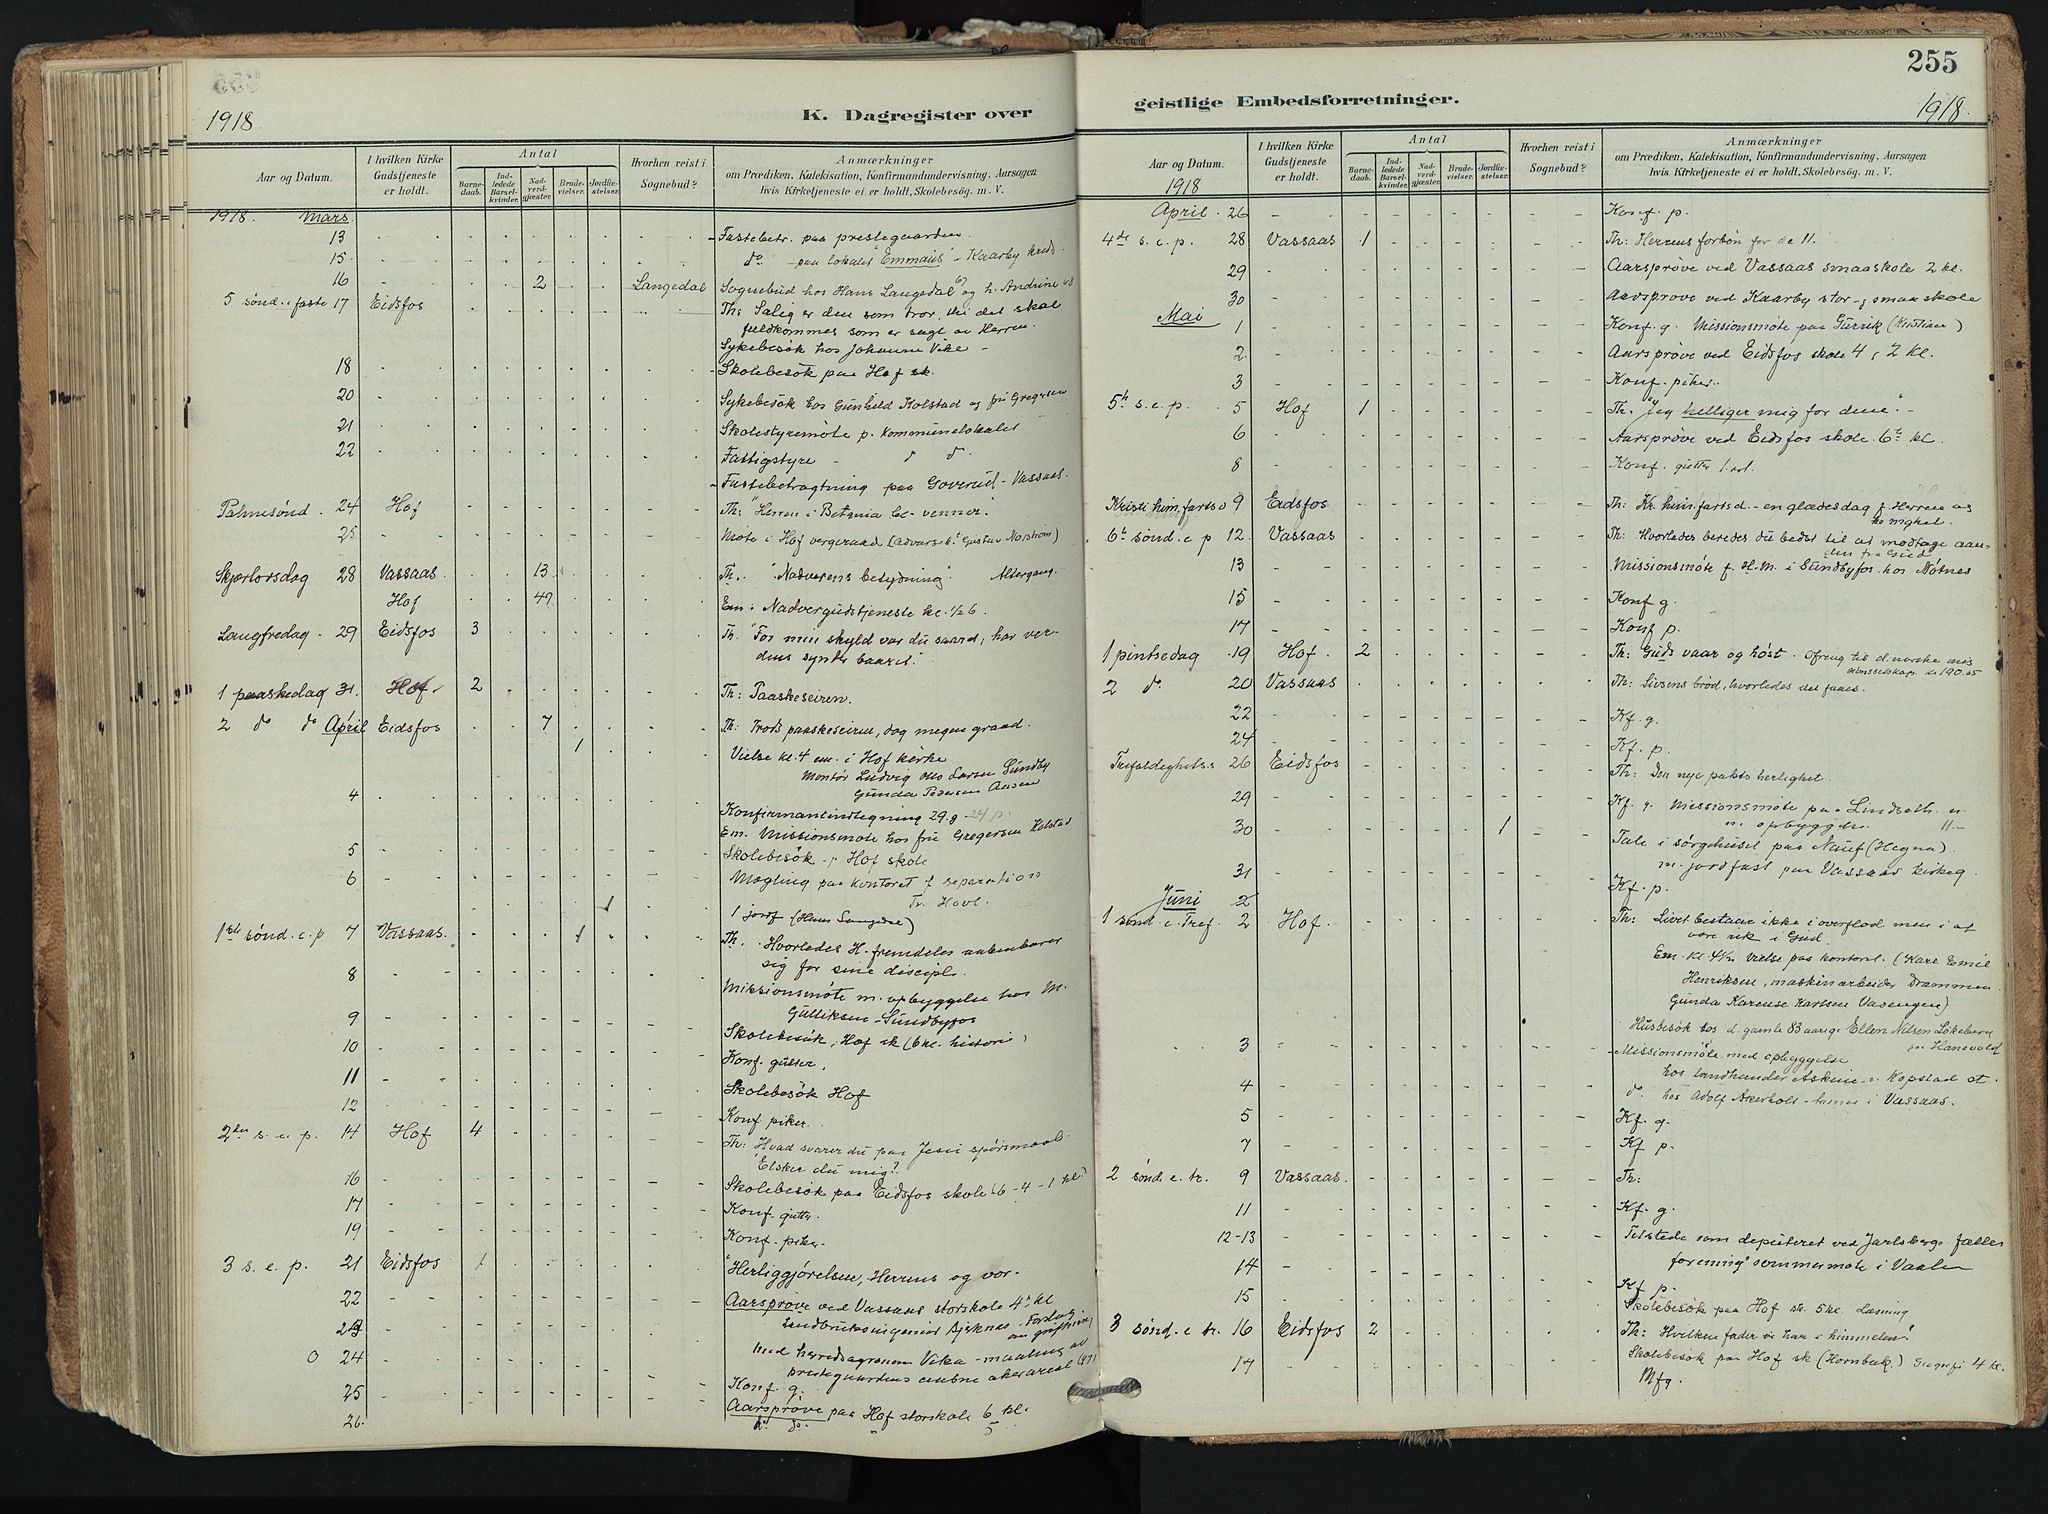 1918
K. Dagregister over
Aar og Datum.
I hvilken Kirke Gudstjeneste er holdt.
Antal
Barnedaab.
Indledede Barselkvinder.
Nadverdgjæster.
Brudevielser.
Jordfæstelser.
Hvorhen reist i Sognebud?
Anmærkninger
om Prædiken, Katekisation, Konfirmandundervisning, Aarsagen
hvis Kirketjeneste ei er holdt, Skolebesøg. m. V.
1918. Mars.
13 Fastebetr. paa prestegaarden
15 do paa lokalet Emmaus - Kaarby kreds
16 2 Langedal Sognebud hos Hans Langedal og h. Andrine
5 sønd. i faste 17 Eidsfos Th: Salig er den som tror, thi det skal
fuldkommes som er sagt av Herren.
Sykebesøk hos Johanne Vike -
18 Skolebesøk paa Hof sk.
20 Sykebesøk hos Gunhild Kolstad og fru Gregersen
21 Skolestyremøte p. Kommunelokalet
22 Fattigstyre - do do
- Fastebetragtning paa Goverud - Vassaas.
Palmesønd. 24 Hof Th: "Herren i Betania bl. venner".
25 Møte i Hof vergeraad
Skjærtorsdag 28 Vassaas 13 Th. "Nadverens betydning" Altergang.
Hof 49 Em: Nadvergudstjeneste kl. 1/2 6.
Langfredag 29 Eidsfos 3 Th. "For min skyld var du saaret, har ver-
dens synder baaret."
1 paaskedag 31. Hof 2 Th: Paaskeseiren.
2 do do April Eidsfos 7 Th: Trods paaskeseiren, dog megen graad.
1 Vielse kl. 4 em. i Hof kirke
Montør Ludvig Larsen Sundby
Gunda Pedersen Aasen
4 Konfirmantindtegning 29 g - 24 p.
Em. Missionsmøte hos fru Gregersen Kolstad
5 Skolebesøk - Hof skole
6 Mægling paa kontoret f separation
1 1 jordf (Hans Langedal)
1ste sønd. e. p 7 Vassaas. 1 Th. Hvorledes H. fremdeles aabenbarer
sig for sine discipl.
8 Missionsmøte m. opbyggelse hos M.
Gulliksen - Sundbyfos
9 Skolebesøk, Hof sk (6 kl. historie)
10 Konf. gutter.
11 Skolebesøk Hof
12 Konf piker.
2den s. e. p. 14 Hof 4 Th: Hvad svarer du paa Jesu spørsmaal
Elsker du mig?
16 Skolebesøk paa Eidsfos skole (6 - 4 - 1 kl)
17 Konf. gutter.
19 Konf. piker.
3 s. e. p. 21 Eidsfos 1 "Herliggjørelsen, Herrens og vor.
22 Aarsprøve ved Vassaas storskole 4de kl
23 Landbruksingeniør
24 Med herredsagronom Vika - maaling av
prestegaardens
25 Konf. g.
26. Aarsprøve paa Hof storskole 6 kl.
do do
255
geistlige Embedsforretninger.
1918.
Aar og Datum.
1918
I hvilken Kirke Gudstjeneste er holdt.
Antal
Barnedaab.
Indledede Barselkvinder.
Nadverdgjæster.
Brudevielser.
Jordfæstelser.
Hvorhen reist i Sognebud?
Anmærkninger
om Prædiken, Katekisation, Konfirmandundervisning, Aarsagen
hvis Kirketjeneste ei er holdt, Skolebesøg. m. V.
April 26 Konf. p.
4de s. e. p. 28 Vassaas 1 Th: Herrens forbøn for de 11.
29 Aarsprøve ved Vassaas smaaskole 2 kl.
30 Aarsprøve ved Kaarby stor- og smaaskole
Mai 1 Konf. g. Missionsmøte paa Gurrik (Kristian)
2. Aarsprøve ved Eidsfos skole 4 og 2 kl.
3 Konf. piker.
5te s. e. p. 5 Hof 1 Th. "Jeg helliger mig for dem". -
6 Aarsprøve ved Eidsfos skole 6te kl.
8 Konf. gutter
Kristi him. fartsd 9 Eidsfos Th: Kr. him. fartsd. - en glædesdag f. Herren og
6te sønd. e p 12. Vassaas Th: Hvorledes beredes du bedst til at modtage aan-
den fra Gud
13 Missionsmøte f. H. M. i Sundbyfos hos Nøtnes
15 Konf g.
17 Konf p.
1 pintsedag 19 Hof. 2 Th: Guds vaar og høst. Ofring til d. norske mis
sionsselskap kr 190.05
2 do 20 Vassaas Th: Livsens brød, hvorledes det faaes.
22 Kf. g.
24 Kf. p.
Trefoldighets.s 26 Eidsfos Th: Den nye pakts herlighet.
29 Kf. g. Missionsmøte paa Lindseth.
m. opbyggelse
30 1 Tale i sørgehuset paa Nauf (Hegna).
m. jordfæst paa Vassaas kirkeg.
31 Kf. p.
Juni 2
1 sønd. e. Tref. 2 Hof. Th: Livet bestaar ikke i overflod men i at
være rik i Gud.
Em. kl. 4 1/2 vielse paa kontoret. (Kare Emil
Henriksen, maskinarbeider Drammen.
Gunda Karense Karlsen Vasengen)
Husbesøk hos d. gamle 83 aarige Ellen Nilsen
paa Hanevold
3 - Missionsmøte med opbyggelse
hos landhandler Askim - Kopstad st.
4 do hos Adolf Akerholt - hmes i Vassaas.
5 Kf. g.
7 Kf p.
2 sønd. e. tr. 9 Vassaas. Th:
11 Kf. g.
12-13 Tilstede som deputeret ved Jarlsbergs fælles
forenings sommermøte i Vaale
14 Kf p.
15 Skolebesøk paa Hof sk. 5 kl. Læsning
3 sønd. e tr. 16 Eidsfos 2 Th: Hvilken fader vi har i himmelen!
17 Skolebesøk paa Hof sk (Hornbæk.) Geografi 4 kl.